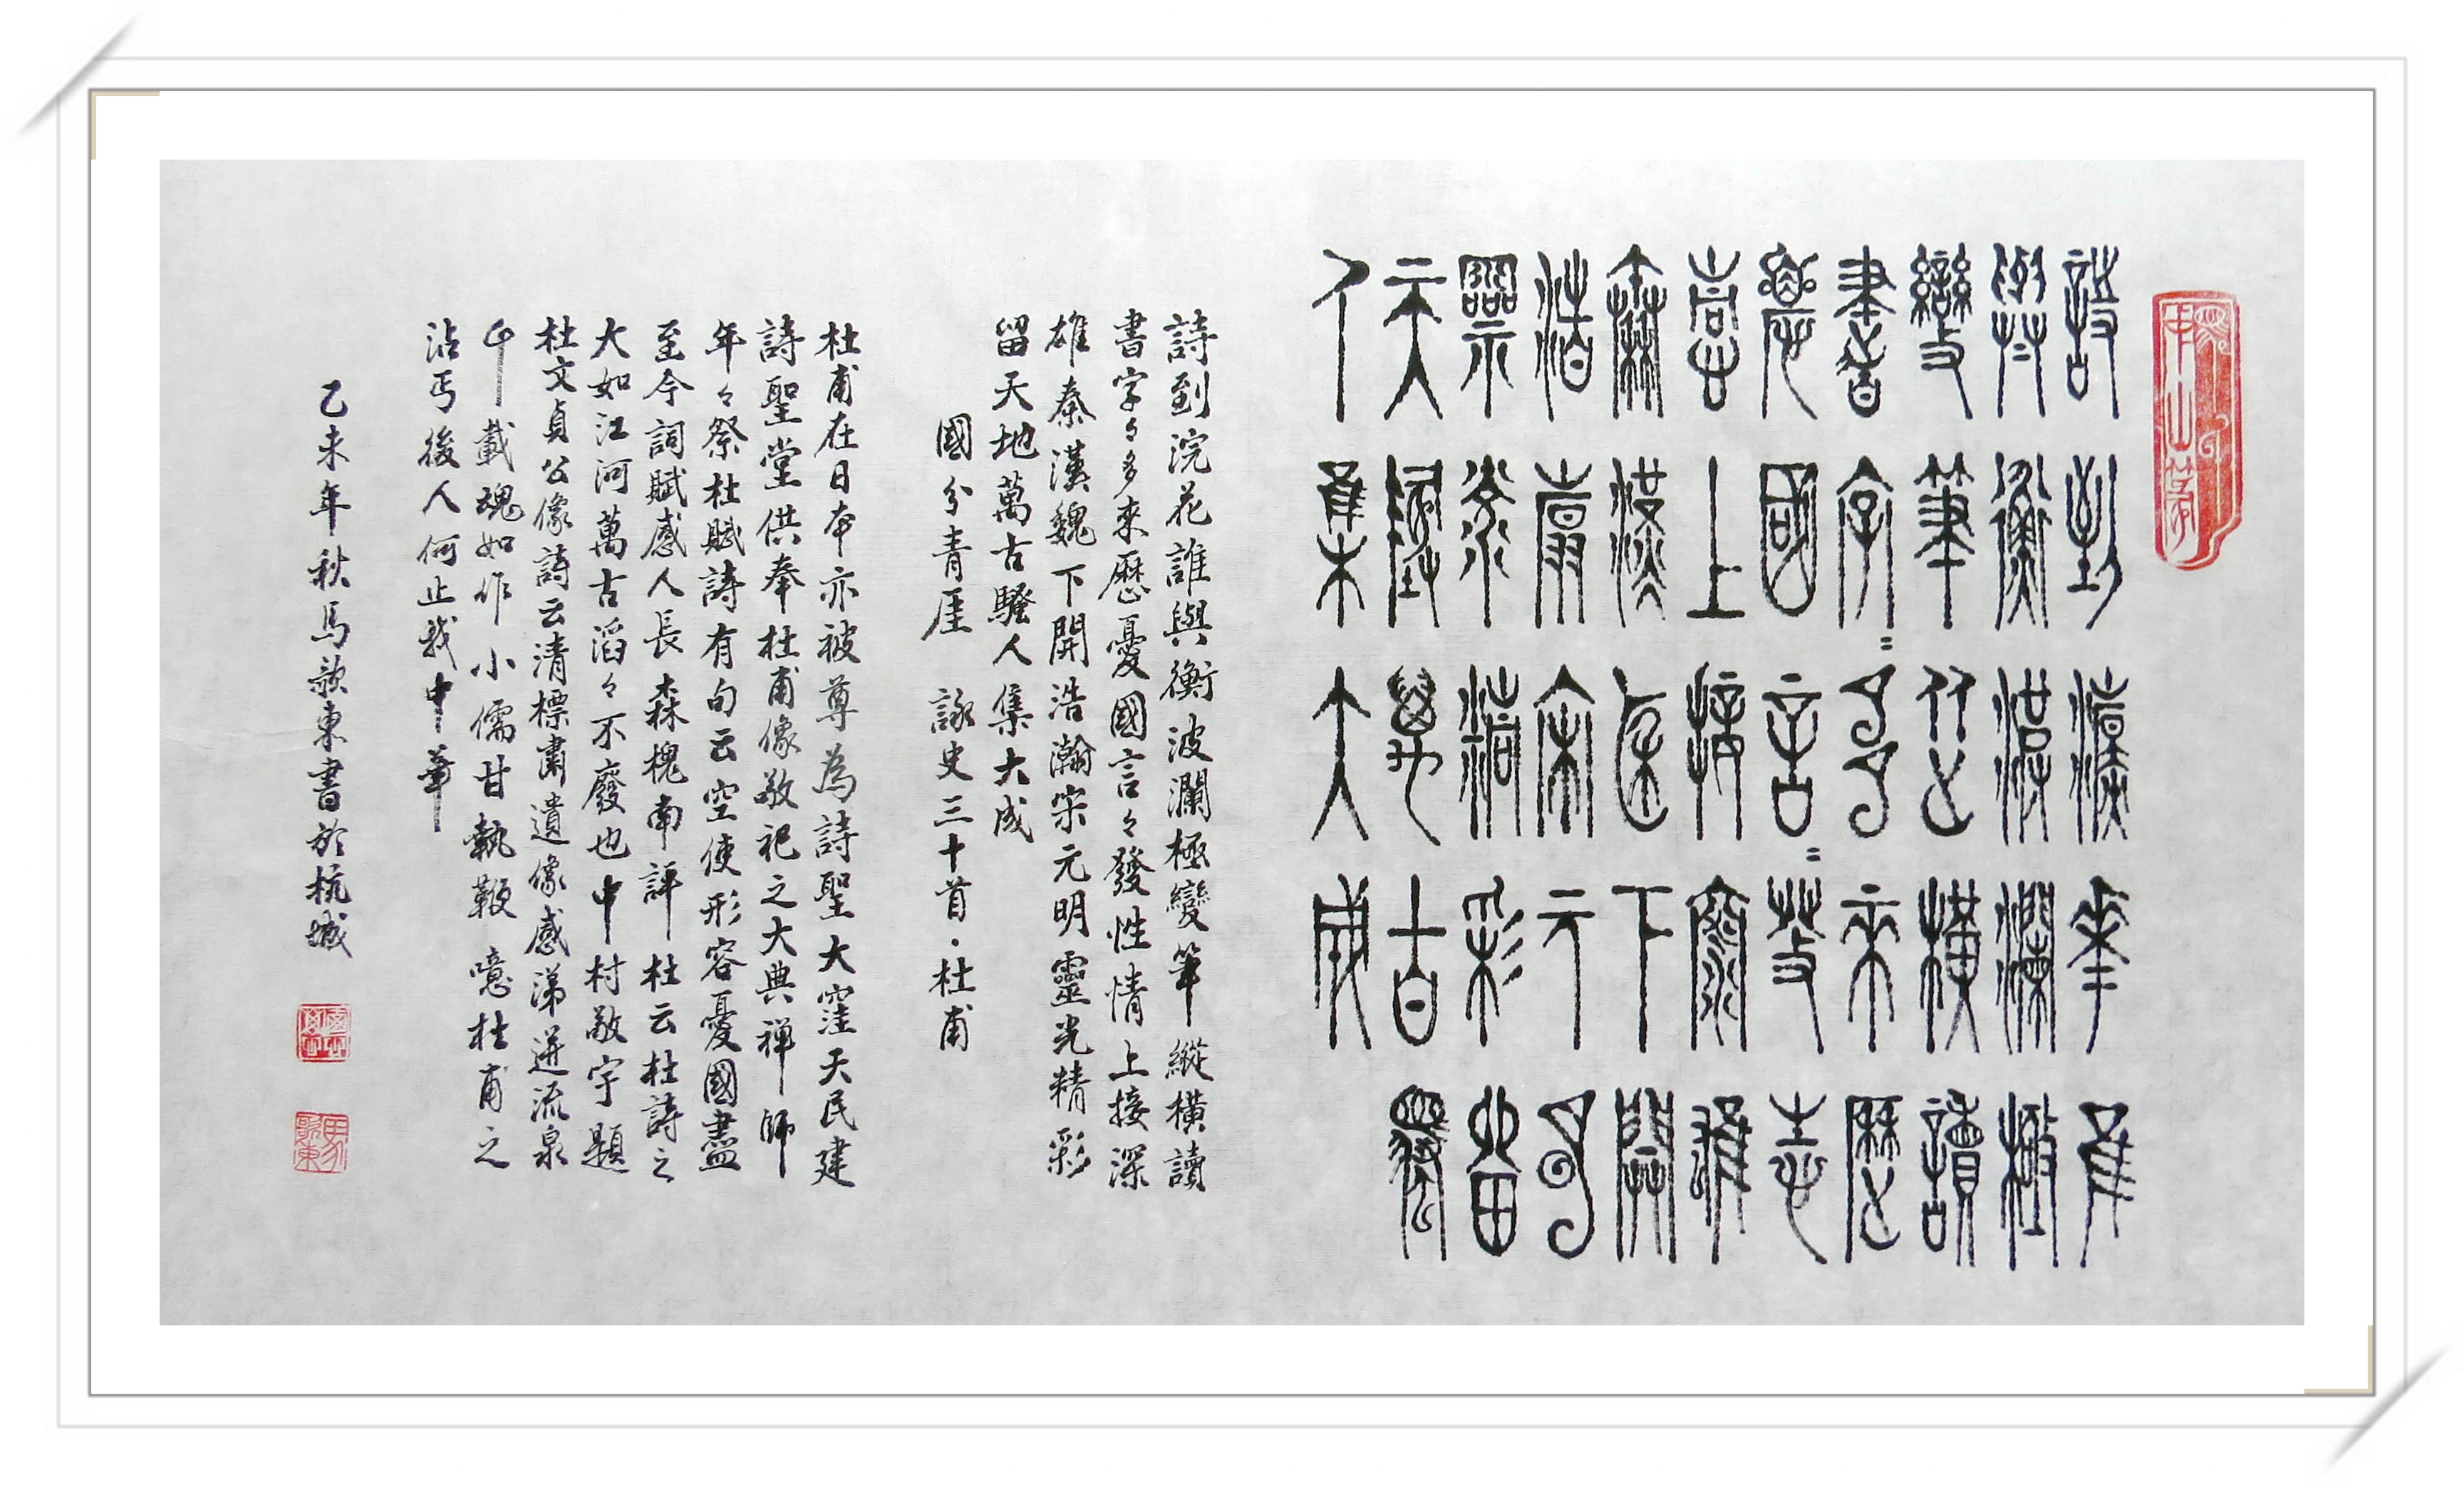 詩到浣花誰
與衡波瀾極
變筆縱橫讀
書字〻多來歷
憂國言〻發性
情上接深雄
秦漢魏下開
浩瀚宋元明
靈光精彩留
天地萬古騷
人集大成
詩到浣花誰與衡波瀾極變筆縱橫讀
書字〻多來歷憂國言〻發性情上接深
雄秦漢魏下開浩瀚宋元明靈光精彩
留天地萬古騷人集大成
國分青厓 詠史三十首·杜甫
杜甫在日本亦被尊為詩聖大窪天民建
詩聖堂供奉杜甫像敬祀之大典禪師
年〻祭杜賦詩有句云空使形容憂國盡
至今詞賦感人長森槐南評杜云杜詩之
大如江河萬古滔〻不廢也中村敬宇題
杜文貞公像詩云清標肅遺像感涕迸流泉
千載魂如作小儒甘執鞭噫杜甫之
沾丐後人何止我中華
乙未年秋馬歌東書於杭城
馬歌東